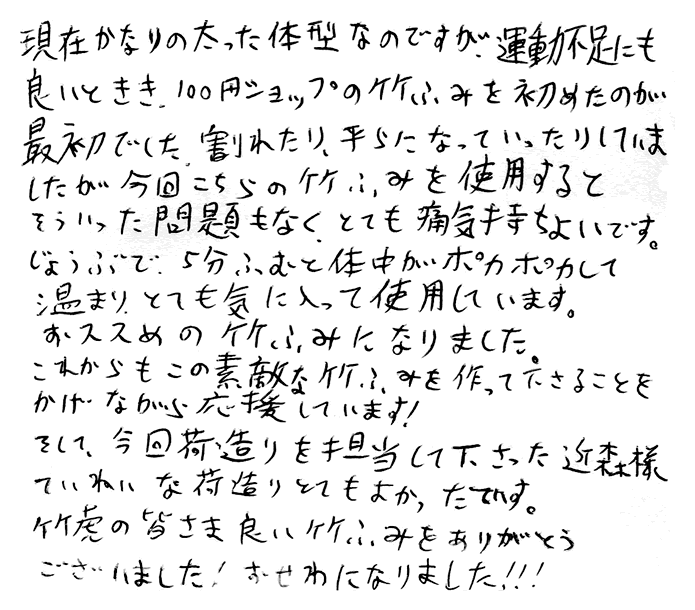 現在かなりの太った体型なのですが、運動不足にも
良いときき、100円ショップの竹ふみを初めたのが
最初でした。割れたり、平らになっていったりしていま
したが今回こちらの竹ふみを使用すると
そういった問題もなく、とても痛気持ちよいです。
じょうぶで、5分ふむと体中がポカポカして
温まり、とても気に入って使用しています。
おススめの竹ふみになりました。
これからもこの素敵な竹ふみを作って下さることを
かげながら応援しています!
そして、今回荷造りを担当して下さった近森様
ていねいな荷造りとてもよかったです。
竹虎の皆さま良い竹ふみをありがとう
ございました!おせわになりました!!!